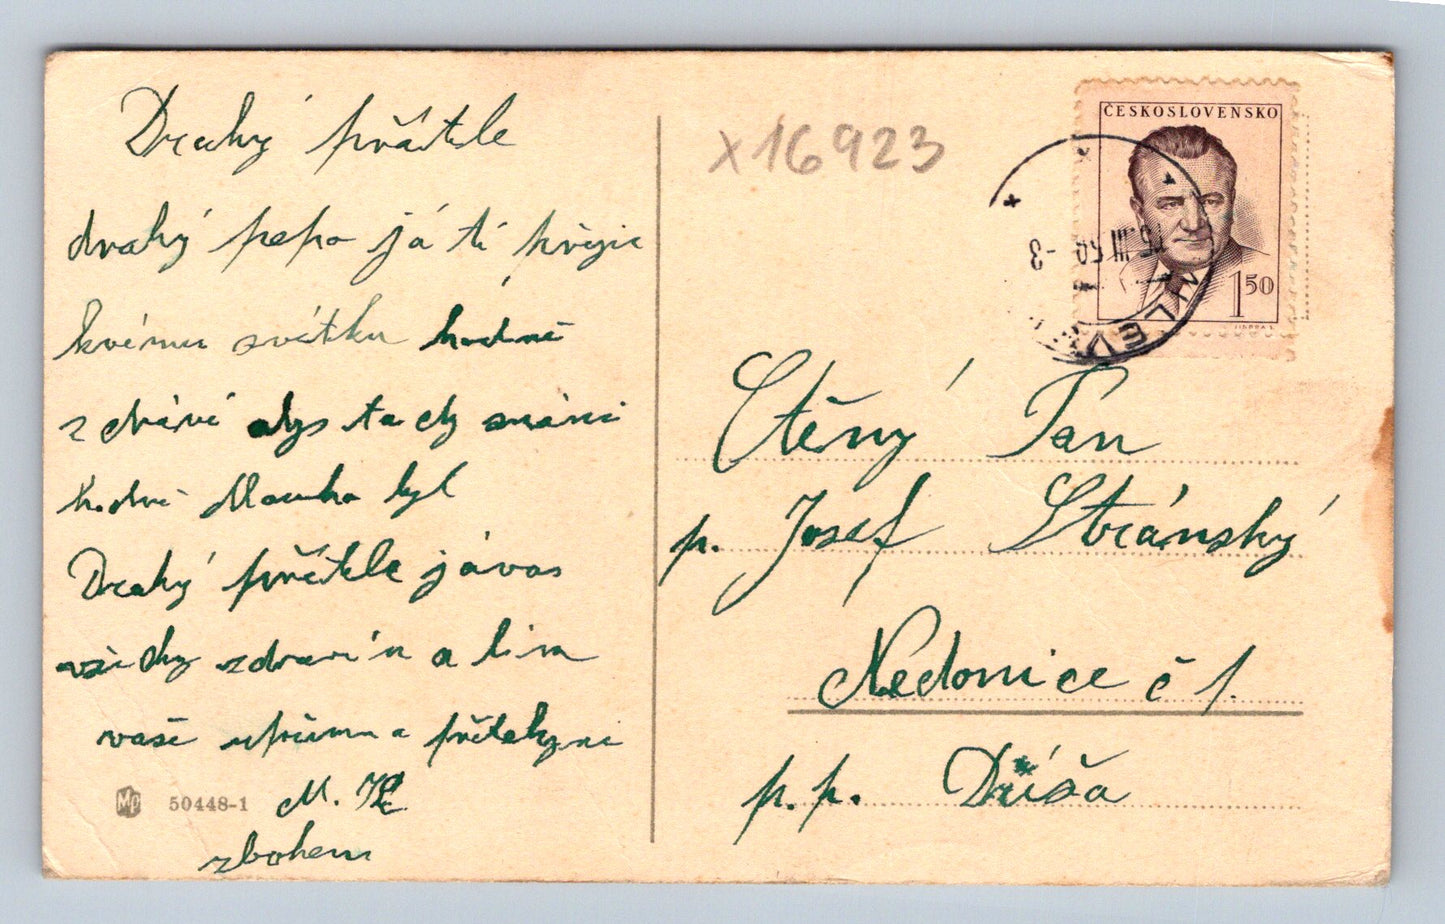 Drahý přátele
drahý pepo já ti přeji
kvému svátku hodně
zdraví abys tady s námi
hodně dlouho byl
Drahý přátele já vas
všichy zdravím a libm
vaše upřímna přitelkyni
M. K
zbohem
50448-1
x16923
ČESKOSLOVENSKO
1 50
Ctěný Pan
p. Josef Stránský
Nedonice č 1.
p.p. Dúša